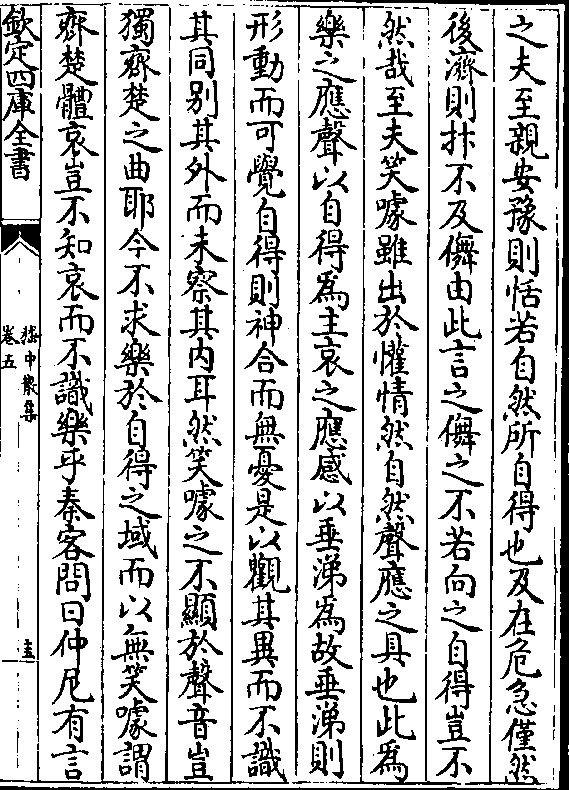 之夫至親安豫則恬若自然所自得也及在危急僅然
後濟則抃不及儛由此言之儛之不若向之自得豈不
然哉至夫笑噱雖出於懽情然自然聲應之具也此為
樂之應聲以自得為主哀之應感以垂涕為故垂涕則
形動而可覺自得則神合而無憂是以觀其異而不識
其同别其外而未察其内耳然笑噱之不顯於聲音豈
獨齊楚之曲耶今不求樂於自得之域而以無笑噱謂
齊楚體哀豈不知哀而不識樂乎秦客問曰仲尼有言
欽定四庫全書
嵇中散集
卷五